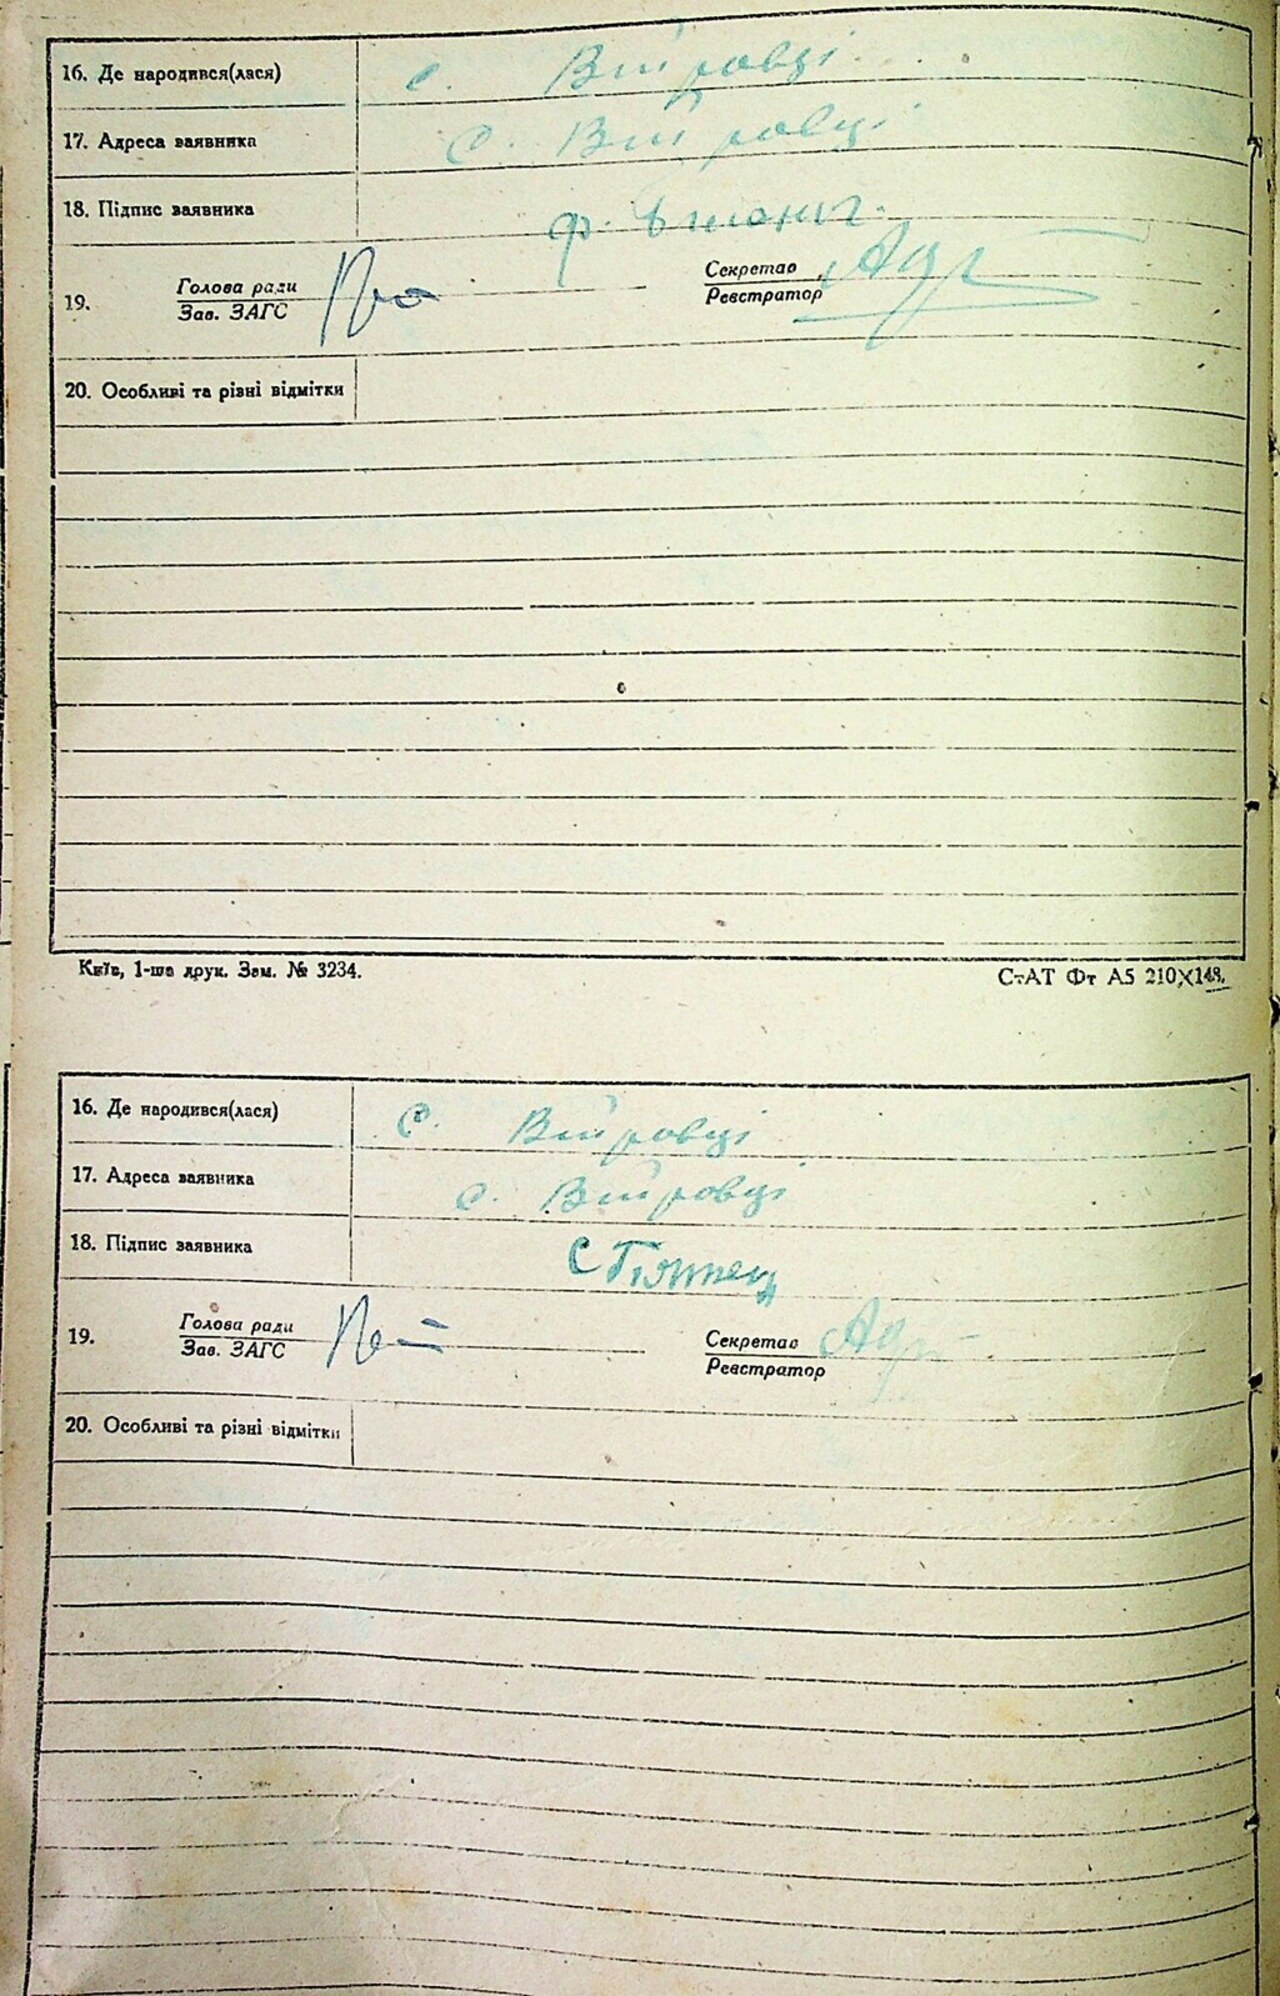 16. Де народився(лася) с. Війтовці
17. Адреса заявника с. Війтовці
18. Підпис заявника ф.
19. Голова ради Секретар
Зав. ЗАГС Реєстратор
20. Особливі та різні відмітки
Київ, 1-ша друк. Зам. № 3234. СтАТ Фт А5 210×148.
16. Де народився(лася) с. Війтовці
17. Адреса заявника с. Війтовці
18. Підпис заявника С
19. Голова ради Секретар
Зав. ЗАГС Реєстратор
20. Особливі та різні відмітки